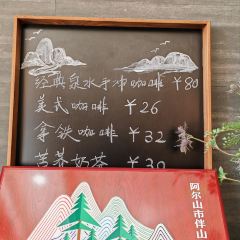 经典泉水手冲咖啡 ¥80
美式咖啡 ¥26
拿铁咖啡 ¥32
苦荞奶茶 ¥30
阿尔山市伴山